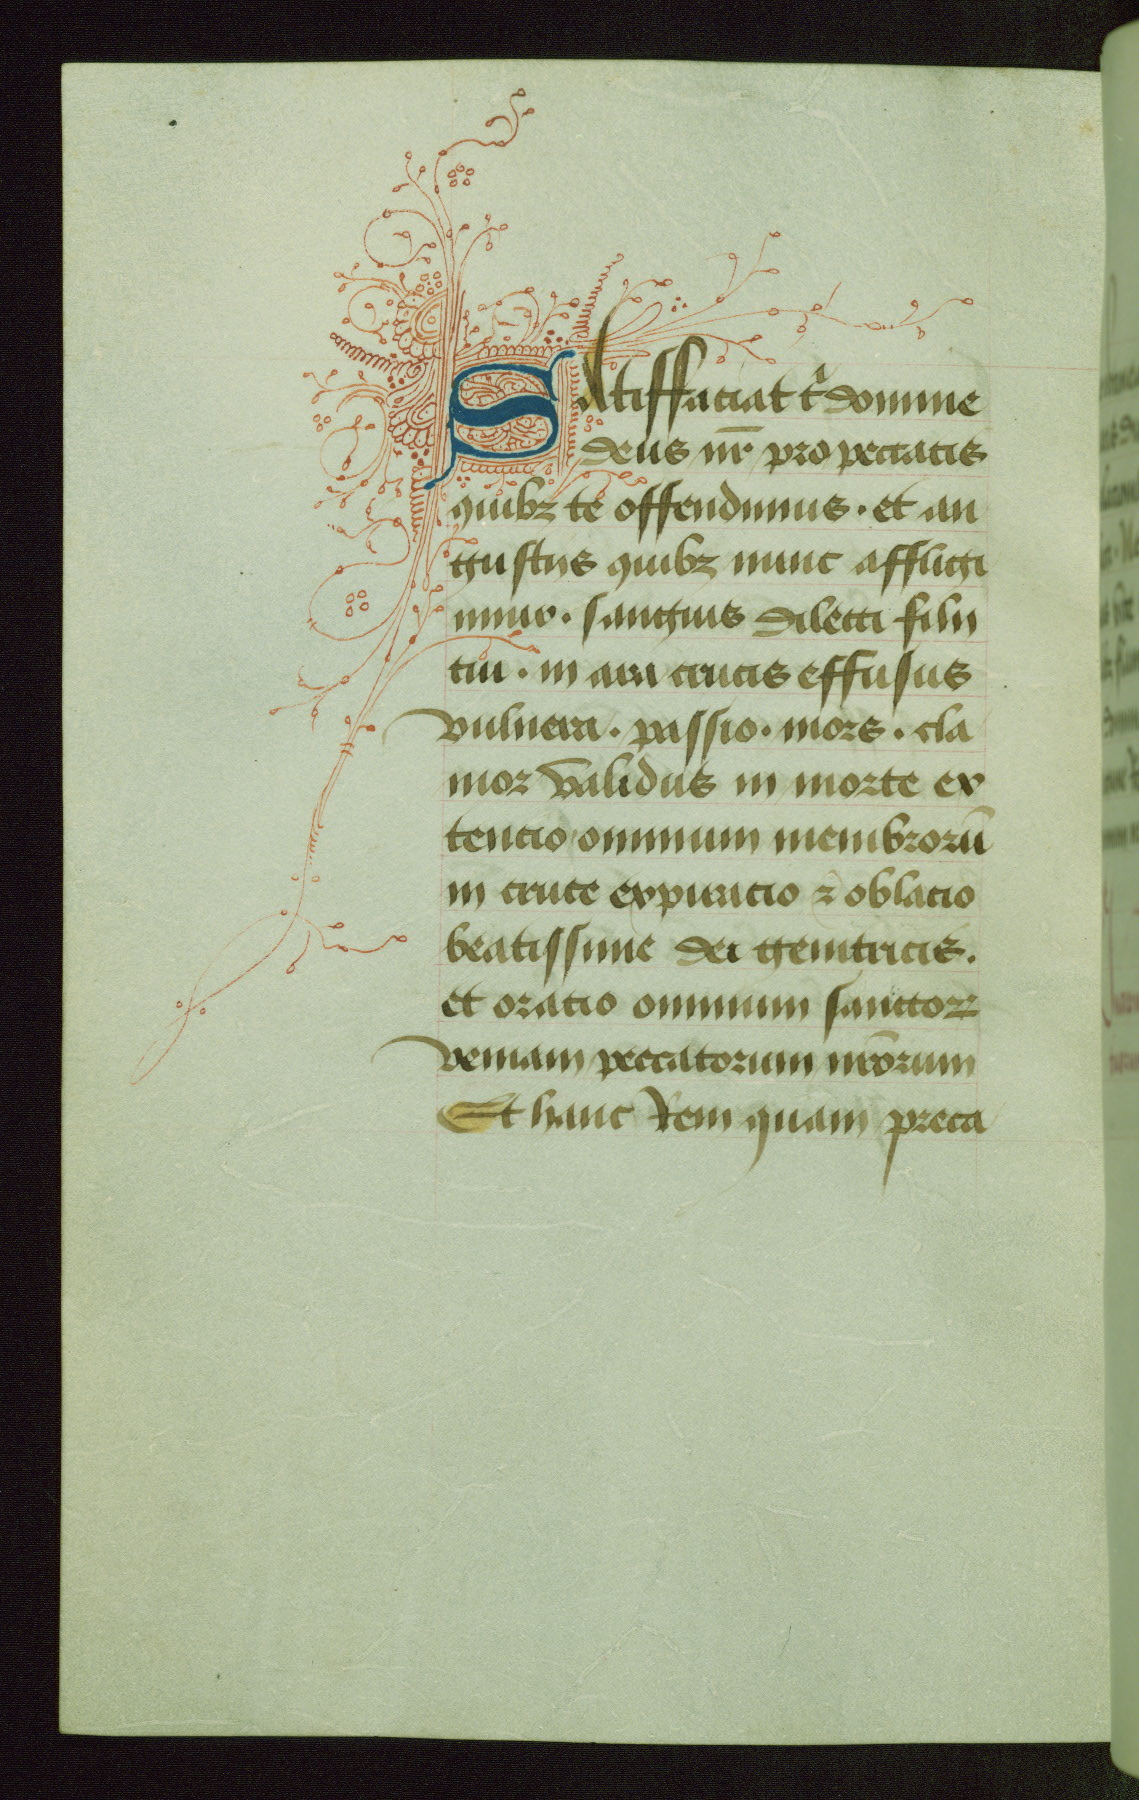 SAtiffaciat t̉ domine
deus nr̄ pro peccatis
quibꝫ te offendimus · et an
gustiis quibꝫ nunc affligi
mur · sanguis dilecti filii
tui · in ara crucis effusus
vulnera · passio · mors · cla
mor validus in morte ex
tencio omnium membrorū
in cruce expiracio ⁊ oblacio
beatissime dei genitricis .
et oracio omnium sanctoꝝ
veniam peccatorum nr̄orum
Et hanc Rem quam preca